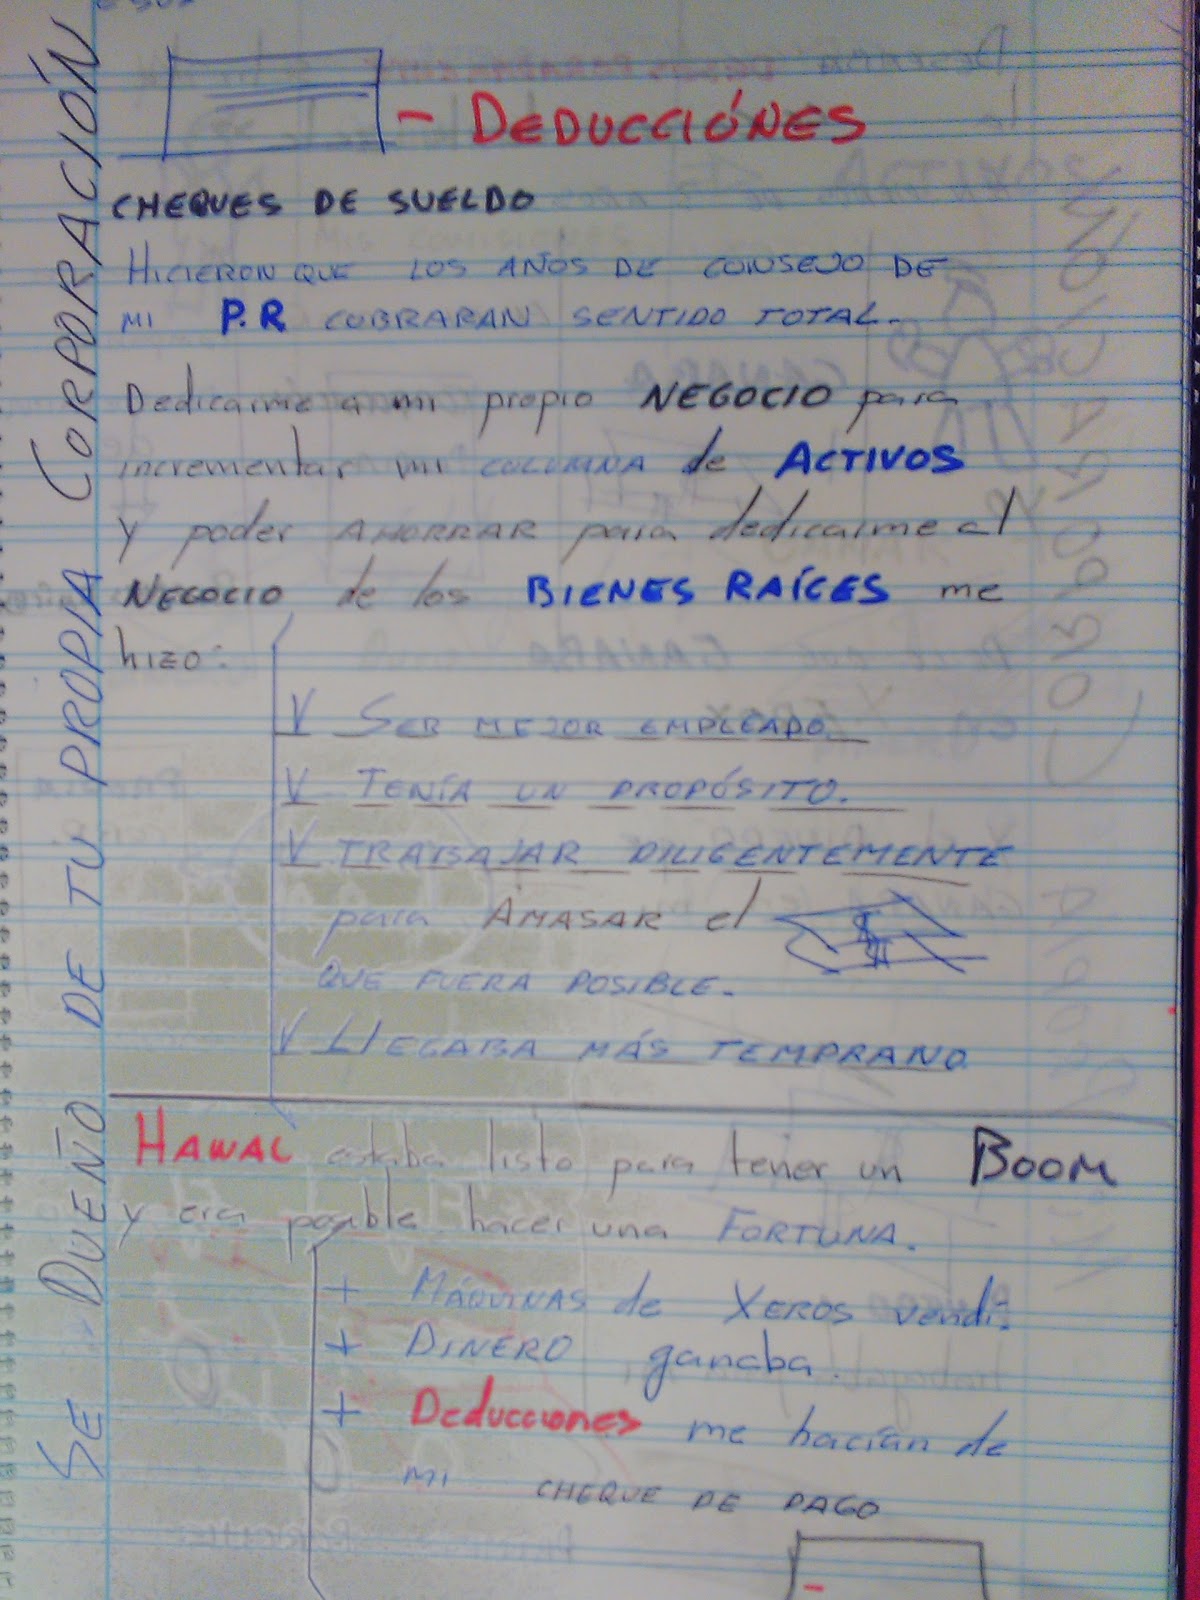 SE DUEÑO DE TU PROPIA CORPORACIÓN
- DEDUCCIÓNES
CHEQUES DE SUELDO
HICIERON QUE LOS AÑOS DE CONSEJO DE
MI P.R COBRARAN SENTIDO TOTAL.
Dedicarme a mi propio NEGOCIO para
incrementar mi COLUMNA de ACTIVOS
y poder AHORRAR para dedicarme al
NEGOCIO de los BIENES RAÍCES me
hizo:
V SER MEJOR EMPLEADO.
V TENÍA UN PROPÓSITO.
V TRABAJAR DILIGENTEMENTE
para AMASAR el $
QUE FUERA POSIBLE.
V LLEGABA MÁS TEMPRANO
HAWAI estaba listo para tener un BOOM
y era posible hacer una FORTUNA.
+ MÁQUINAS de XEROS vendí.
+ DINERO ganaba.
+ Deducciones me hacían de
MI CHEQUE DE PAGO
-